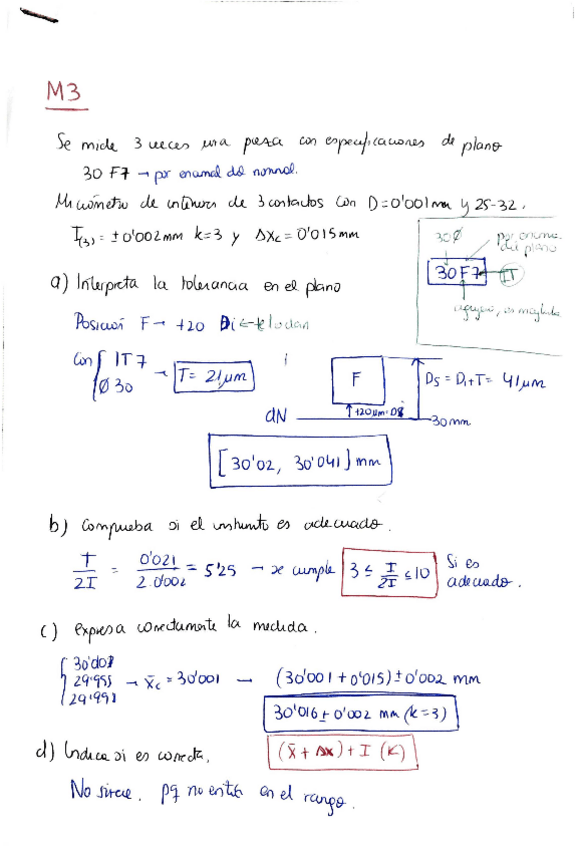 M3
Se mide 3 veces una pieza con especificaciones de plano
30 F7 → por encima del nominal.
Micrómetro de interiores de 3 contactos con D=0'001mm y 25-32.
I(3) = ±0'002mm k=3 y Δxc = 0'015mm
30Ø por encima del plano
30 F7 IT
agujero, es mayúscula
a) Interpreta la tolerancia en el plano
Posición F → +20 Di ← te lo dan
Con { IT7 Ø30 → T = 21μm
F
Ds = Di+T = 41μm
dN
+20μm=Di
30mm
[30'02, 30'041] mm
b) Comprueba si el instrumto es adecuado.
T/2I = 0'021/2·0'002 = 5'25 → se cumple 3 ≤ T/2I ≤ 10 Si es adecuado.
c) expresa correctamente la medida.
→ x̄c = 30'001 — (30'001 + 0'015) ± 0'002 mm
30'016 ± 0'002 mm (k=3)
d) Indica si es correcta. (x̄ + Δx) + I (K)
No sirve. pq no entra en el rango.